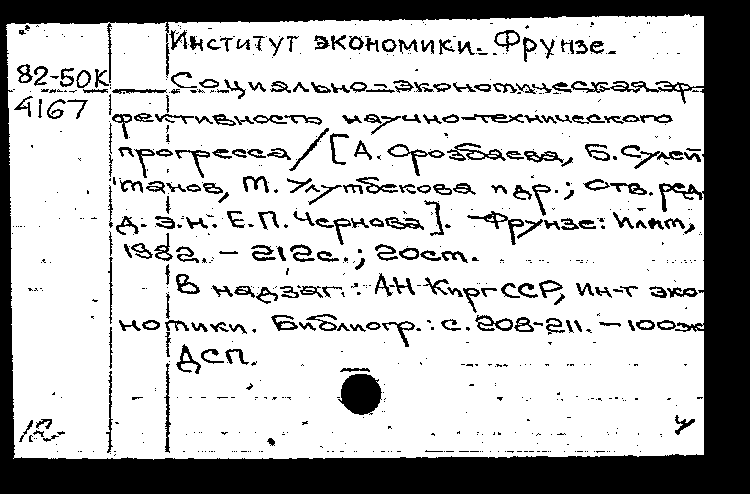 Институт экономики. Фрунзе.
82-50К Социально-экономическая эф-
4167
фективность научно-технического
прогресса / [А. Орозбаева, Б. Сулей-
манов, Т. Улутбекова и др.; Отв. ред.
д. э. н. Е.П. Чернова]. – Фрунзе: Илим,
1982. – 212с.; 20см.
В надзаг.: АН КиргССР, Ин-т эко-
номики. Библиогр.: с. 208-211. – 100эк
ДСП.
12